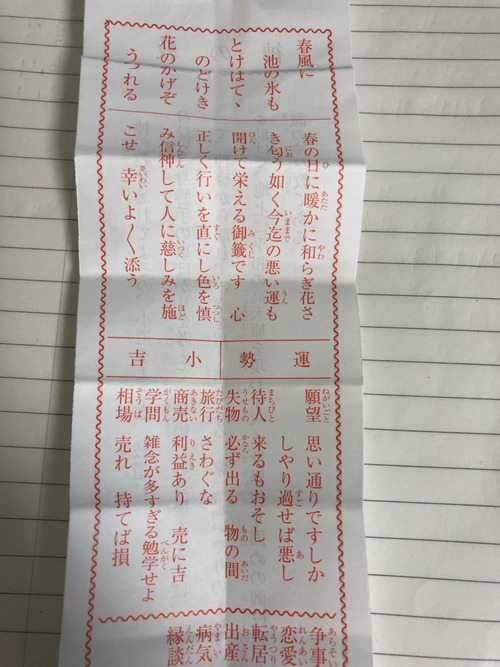 春風に
池の氷も
とけはてゝ
のどけき
花のかげぞ
うつれる
春の日に暖かに和らぎ花さ
き匂う如く今迄の悪い運も
開けて栄える御籤です 心
正しく行いを直にし色を慎
み信神して人に慈しみを施
こせ 幸いよ〱添う
運勢 小吉
願望 思い通りですしか
しやり過せば悪し
待人 来るもおそし
失物 必ず出る 物の間
旅行 さわぐな
商売 利益あり 売に吉
学問 雑念が多すぎる勉学せよ
相場 売れ 持てば損
争事
恋愛
転居
出産
病気
縁談